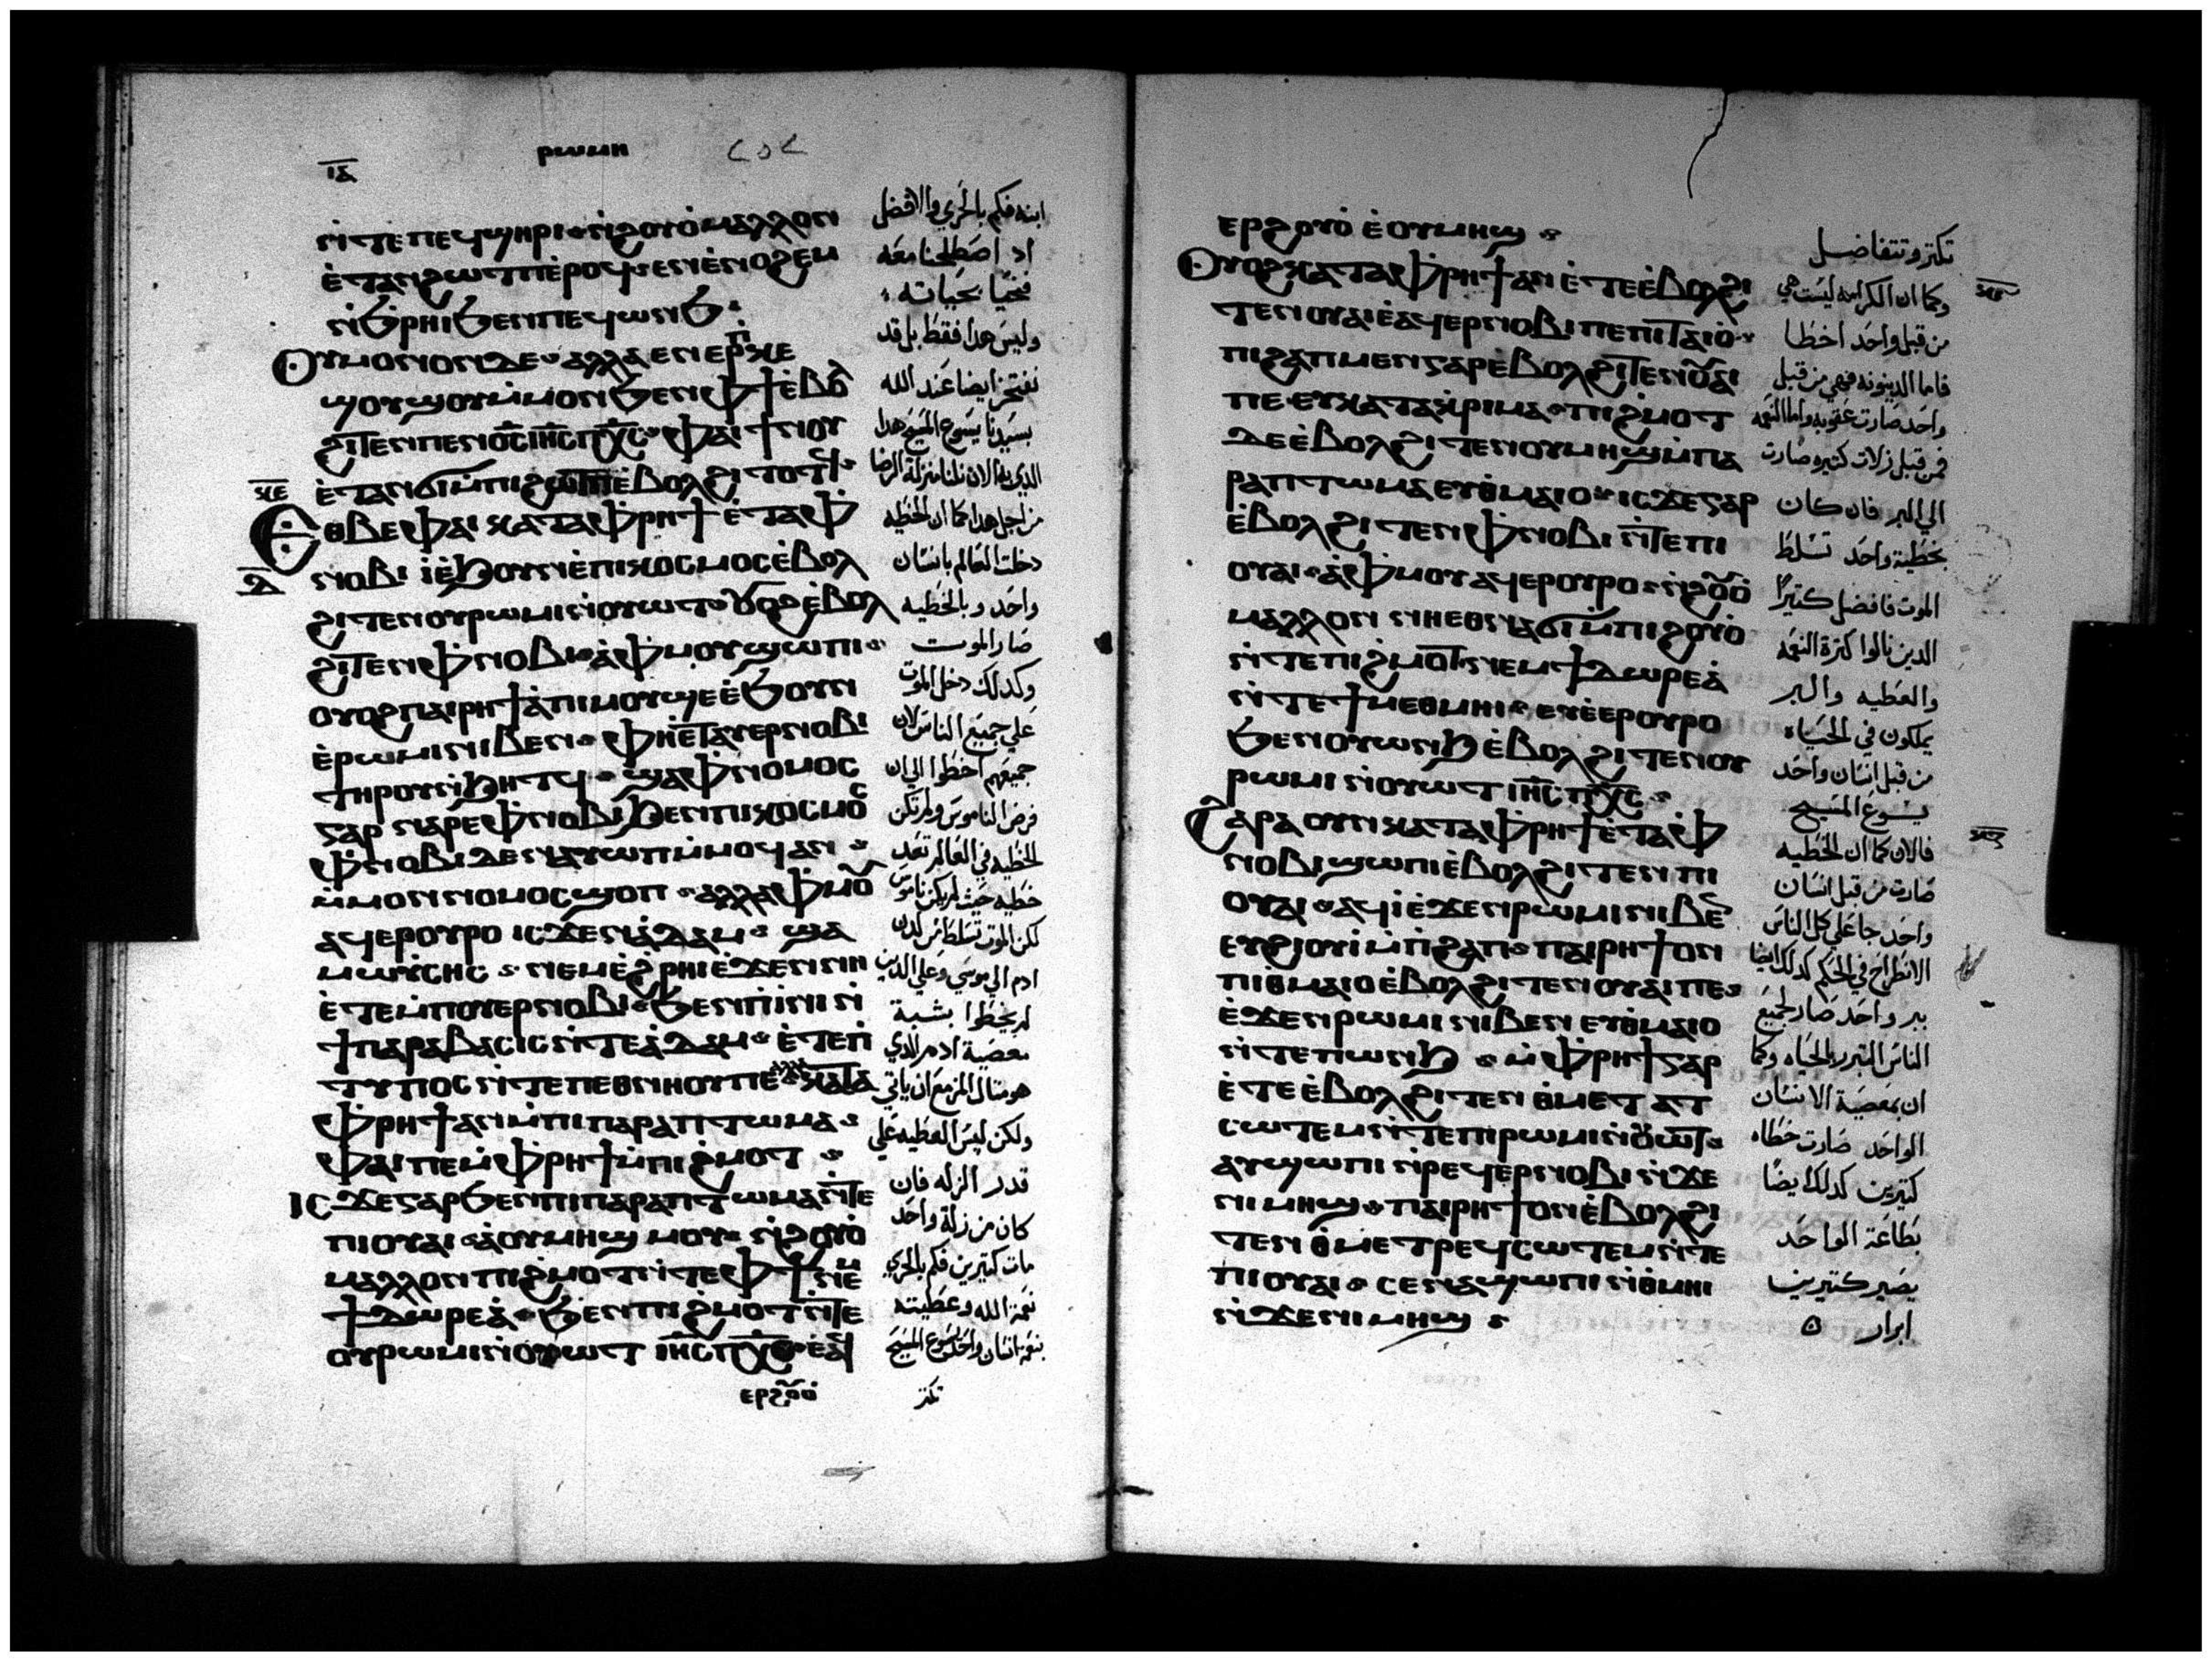 ⲓⲇ
ⲣⲱⲙⲏ
ⲛ̀ⲧⲉⲡⲉϥϣⲏⲣⲓ ⲛ̀ϩⲟⲩⲟ̀ ⲙⲁⲗⲗⲟⲛ
ⲉ̀ⲧⲁⲛϩⲱⲧⲡ ⲉ̀ⲣⲟϥ ⲉⲛⲉ̀ⲛⲟϩⲉⲙ
ⲛ̀ϧⲣⲏⲓ ϧⲉⲛ ⲡⲉϥⲱⲛϧ
ⲟⲩⲙⲟⲛⲟⲛ ⲇⲉ ⲁⲗⲗⲁ ⲉⲛⲉⲣⲡⲕⲉ
ϣⲟⲩϣⲟⲩ ⲙ̀ⲙⲟⲛ ϧⲉⲛ ⲫϯ ⲉ̀ⲃⲟⲗ
ϩⲓⲧⲉⲛ ⲡⲉⲛⲟ̅ⲥ̅ ⲓⲏ̅ⲥ̅ ⲡⲭ̅ⲥ̅ ⲫⲁⲓ ϯⲛⲟⲩ
ⲉ̀ⲧⲁⲛϭⲓ ⲙ̀ⲡⲓϩⲱⲧⲡ ⲉ̀ⲃⲟⲗ ϩⲓⲧⲟⲧϥ
ⲕⲉ
ⲉⲑⲃⲉ ⲫⲁⲓ ⲕⲁⲧⲁ ⲫⲣⲏϯ ⲉ̀ⲧⲁ ⲫ
ⲛⲟⲃⲓ ⲓ̀ ⲉ̀ϧⲟⲩⲛ ⲉ̀ⲡⲓⲕⲟⲥⲙⲟⲥ ⲉ̀ⲃⲟⲗ
ϩⲓⲧⲉⲛ ⲟⲩⲣⲱⲙⲓ ⲛ̀ⲟⲩⲱⲧ ⲟⲩⲟϩ ⲉ̀ⲃⲟⲗ
ϩⲓⲧⲉⲛ ⲫⲛⲟⲃⲓ ⲁ̀ ⲫⲙⲟⲩ ϣⲱⲡⲓ
ⲟⲩⲟϩ ⲡⲁⲓⲣⲏϯ ⲁ̀ ⲡⲓⲙⲟⲩ ϣⲉ ⲉ̀ϧⲟⲩⲛ
ⲉ̀ⲣⲱⲙⲓ ⲛⲓⲃⲉⲛ ⲫⲏⲉ̀ⲧⲁⲩⲉⲣⲛⲟⲃⲓ
ⲧⲏⲣⲟⲩ ⲛ̀ϧⲏⲧϥ ϣⲁ ⲫⲛⲟⲙⲟⲥ
ⲅⲁⲣ ⲛⲁⲣⲉ ⲫⲛⲟⲃⲓ ϧⲉⲛ ⲡⲓⲕⲟⲥⲙⲟⲥ
ⲫⲛⲟⲃⲓ ⲇⲉ ⲛⲁⲩⲱⲡ ⲙ̀ⲙⲟϥ ⲁⲛ
ⲙ̀ⲙⲟⲛ ⲛⲟⲙⲟⲥ ϣⲟⲡ ⲁⲗⲗⲁ ⲫⲙⲟⲩ
ⲁϥⲉⲣⲟⲩⲣⲟ ⲓⲥϫⲉⲛ ⲁ̀ⲇⲁⲙ ϣⲁ
ⲙⲱⲩ̀ⲥⲏⲥ ⲛⲉⲙ ⲉ̀ϩⲣⲏⲓ ⲉ̀ϫⲉⲛ ⲛⲏ
ⲉ̀ⲧⲉⲙ̀ⲡⲟⲩⲉⲣⲛⲟⲃⲓ ϧⲉⲛ ⲡⲓ̀ⲛⲓ ⲛ̀
ϯⲡⲁⲣⲁⲃⲁⲥⲓⲥ ⲛ̀ⲧⲉ ⲁ̀ⲇⲁⲙ ⲉ̀ⲧⲉ ⲡ̀
ⲧⲩⲡⲟⲥ ⲛ̀ⲧⲉ ⲡⲉⲑⲛⲏⲟⲩ ⲡⲉ ⲁⲗⲗⲁ ⲕⲁⲧⲁ
ⲫⲣⲏϯ ⲁⲛ ⲙ̀ⲡⲓⲡⲁⲣⲁⲡⲧⲱⲙⲁ
ⲫⲁⲓ ⲡⲉ ⲙ̀ⲫⲣⲏϯ ⲙ̀ⲡⲓϩⲙⲟⲧ
ⲓⲥϫⲉ ⲅⲁⲣ ϧⲉⲛ ⲡⲓⲡⲁⲣⲁⲡⲧⲱⲙⲁ ⲛ̀ⲧⲉ
ⲡⲓⲟⲩⲁⲓ ⲁ̀ ⲟⲩⲙⲏϣ ⲙⲟⲩ ⲛ̀ϩⲟⲩⲟ̀
ⲙⲁⲗⲗⲟⲛ ⲡⲓϩⲙⲟⲧ ⲛ̀ⲧⲉ ⲫϯ ⲛⲉⲙ
ϯⲇⲱⲣⲉⲁ̀ ϧⲉⲛ ⲡⲓϩⲙⲟⲧ ⲛ̀ⲧⲉ
ⲟⲩⲣⲱⲙⲓ ⲛ̀ⲟⲩⲱⲧ ⲓⲏ̅ⲥ̅ ⲡⲭ̅ⲥ̅
ⲉⲣϩⲟⲩⲟ̀
ابنه فكم بالحري والافضل
اد اصطلحنا معه
نحيا بحياته
وليس هدا فقط بل قد
نفتخر ايضا عند الله
بسيدنا يسوع المسيح هدا
الدي به الان نلنا منزلة الرضا
من اجل هدا كما ان الخطيه
دخلت العالم بانسان
واحد وبالخطيه
صار الموت
وكدلك دخل الموت
علي جميع الناس لان
جميعهم اخطوا الي ان
فرض الناموس ولم تكن
الخطيه في العالم تعد
خطيه حيث لم يكن ناموس
لكن الموت تسلط من لدن
ادم الي موسي وعلي الدين
لم يخطوا بشبة
معصية ادم الدي
هو مثال المزمع ان ياتي
ولكن ليس العطيه علي
قدر الزله فان
كان من زلة واحد
مات كتيرين فكم بالحري
نعمة الله وعطيته
بنعمة انسان واحد يسوع المسيح
تكتر
ⲉⲣϩⲟⲩⲟ̀ ⲉ̀ⲟⲩⲙⲏϣ
ⲟⲩⲟϩ ⲕⲁⲧⲁ ⲫⲣⲏϯ ⲁⲛ ⲉ̀ⲧⲉ ⲉ̀ⲃⲟⲗ ϩⲓ
ⲧⲉⲛ ⲟⲩⲁⲓ ⲉ̀ⲁϥⲉⲣⲛⲟⲃⲓ ⲡⲉ ⲡⲓⲧⲁⲓⲟ̀
ⲡⲓϩⲁⲡ ⲙⲉⲛ ⲅⲁⲣ ⲉ̀ⲃⲟⲗ ϩⲓⲧⲉⲛ ⲟⲩⲁⲓ
ⲡⲉ ⲉⲩⲕⲁⲧⲁⲕⲣⲓⲙⲁ ⲡⲓϩⲙⲟⲧ
ⲇⲉ ⲉ̀ⲃⲟⲗ ϩⲓⲧⲉⲛ ⲟⲩⲙⲏϣ ⲙ̀ⲡⲁ
ⲣⲁⲡⲧⲱⲙⲁ ⲉⲩⲑⲙⲁⲓⲟ ⲓⲥϫⲉ ⲅⲁⲣ
ⲉ̀ⲃⲟⲗ ϩⲓⲧⲉⲛ ⲫⲛⲟⲃⲓ ⲛ̀ⲧⲉ ⲡⲓ
ⲟⲩⲁⲓ ⲁ̀ ⲫⲙⲟⲩ ⲁϥⲉⲣⲟⲩⲣⲟ ⲛ̀ϩⲟⲩⲟ̀
ⲙⲁⲗⲗⲟⲛ ⲛⲏⲉⲑⲛⲁϭⲓ ⲙ̀ⲡⲓϩⲟⲩⲟ̀
ⲛ̀ⲧⲉ ⲡⲓϩⲙⲟⲧ ⲛⲉⲙ ϯⲇⲱⲣⲉⲁ̀
ⲛ̀ⲧⲉ ϯⲙⲉⲑⲙⲏⲓ ⲉⲩⲉ̀ⲉⲣⲟⲩⲣⲟ
ϧⲉⲛ ⲟⲩⲱⲛϧ ⲉ̀ⲃⲟⲗ ϩⲓⲧⲉⲛ ⲟⲩ
ⲣⲱⲙⲓ ⲛ̀ⲟⲩⲱⲧ ⲓⲏ̅ⲥ̅ ⲡⲭ̅ⲥ̅
ϩⲁⲣⲁ ⲟⲩⲛ ⲕⲁⲧⲁ ⲫⲣⲏϯ ⲉ̀ⲧⲁ ⲫ
ⲛⲟⲃⲓ ϣⲱⲡⲓ ⲉ̀ⲃⲟⲗ ϩⲓⲧⲉⲛ ⲡⲓ
ⲟⲩⲁⲓ ⲁϥⲓ̀ ⲉ̀ϫⲉⲛ ⲣⲱⲙⲓ ⲛⲓⲃⲉⲛ
ⲉⲩϩⲓⲟⲩⲓ̀ ⲙ̀ⲡ̀ϩⲁⲡ ⲡⲁⲓⲣⲏϯ ⲟⲛ
ⲡⲓⲑ̀ⲙⲁⲓⲟ ⲉ̀ⲃⲟⲗ ϩⲓⲧⲉⲛ ⲟⲩⲁⲓ ⲡⲉ
ⲉ̀ϫⲉⲛ ⲣⲱⲙⲓ ⲛⲓⲃⲉⲛ ⲉⲩⲑ̀ⲙⲁⲓⲟ
ⲛ̀ⲧⲉ ⲡⲱⲛϧ ⲙ̀ⲫⲣⲏϯ ⲅⲁⲣ
ⲉ̀ⲧⲉ ⲉ̀ⲃⲟⲗ ϩⲓⲧⲉⲛ ⲑ̀ⲙⲉⲧⲁⲧ
ⲥⲱⲧⲉⲙ ⲛ̀ⲧⲉ ⲡⲓⲣⲱⲙⲓ ⲛ̀ⲟⲩⲱⲧ
ⲁⲩϣⲱⲡⲓ ⲛ̀ⲣⲉϥⲉⲣⲛⲟⲃⲓ ⲛ̀ϫⲉ
ⲛⲓⲙⲏϣ ⲡⲁⲓⲣⲏϯ ⲟⲛ ⲉ̀ⲃⲟⲗ ϩⲓ
ⲧⲉⲛ ⲑ̀ⲙⲉⲧⲣⲉϥⲥⲱⲧⲉⲙ ⲛ̀ⲧⲉ
ⲡⲓⲟⲩⲁⲓ ⲥⲉⲛⲁϣⲱⲡⲓ ⲛ̀ⲑⲙⲏⲓ
ⲛ̀ϫⲉ ⲛⲓⲙⲏϣ
تكتر وتتفاضل
وكما ان الكرامه ليست هي
من قبل واحد اخطا
فاما الدينونه فهي من قبل
واحد صارت عقوبه واما النعمه
فمن قبل زلات كتيره صارت
الي البر فان كان
بخطية واحد تسلط
الموت فافضل كتيرا
الدين نالوا كترة النعمه
والعطيه والبر
يملكون في الحياه
من قبل انسان واحد
يسوع المسيح
فالان كما ان الخطيه
صارت من قبل انسان
واحد جا علي كل الناس
الانطراح في الحكم كدلك ايضا
ببر واحد صار لجميع
الناس التبرر بالحياه وكما
ان بمعصية الانسان
الواحد صارت خطاه
كتيرين كدلك ايضا
بطاعة الواحد
يصير كتيرين
ابرار